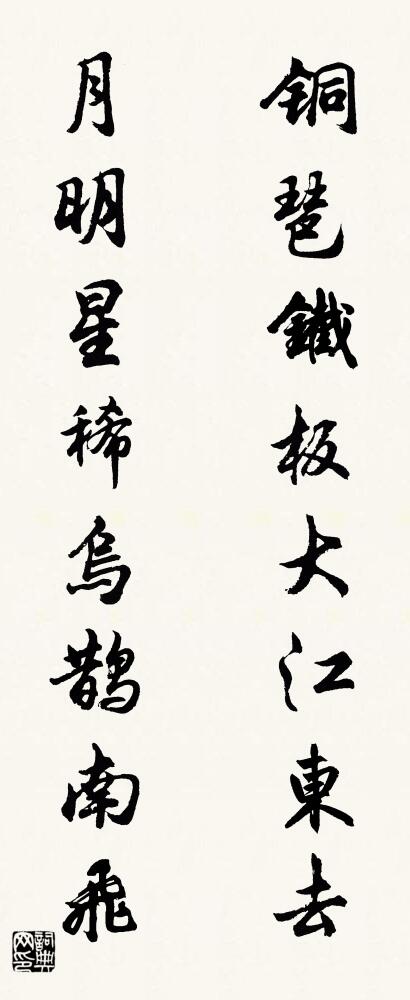 銅琶鐵板大江東去
月明星稀烏鵲南飛
詞典网印